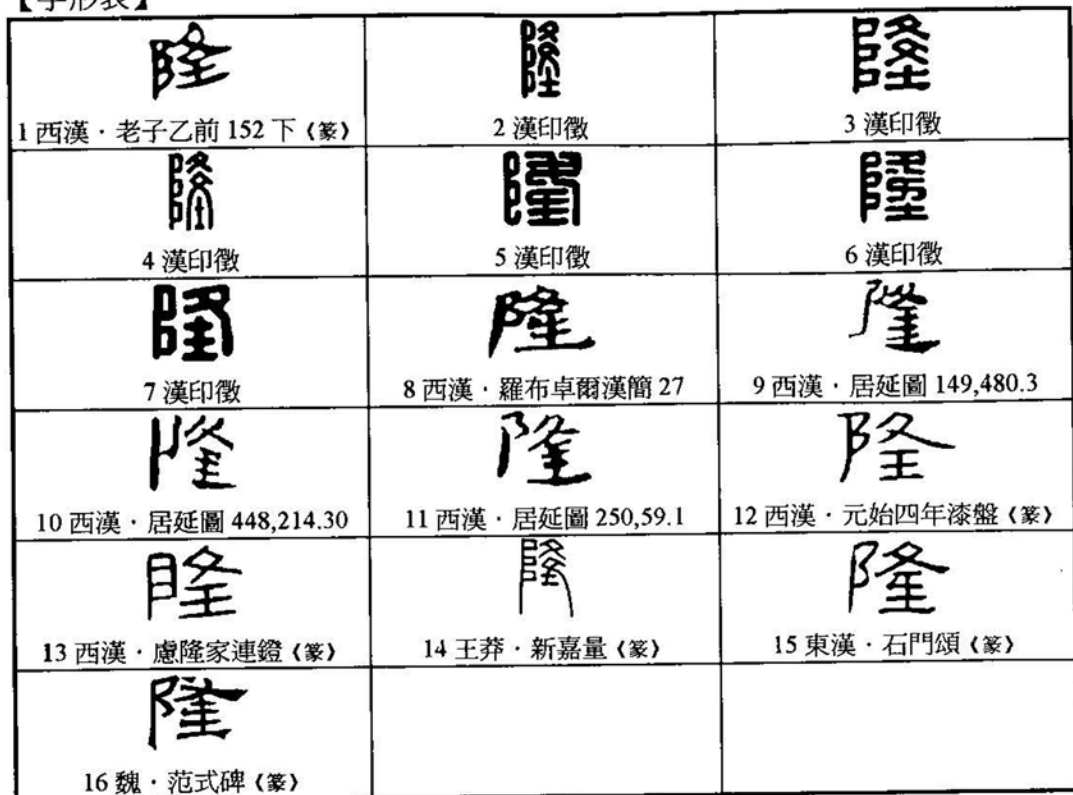 【字形表】
隆 隆 隆
1 西漢．老子乙前 152 下《篆》 2 漢印徵 3 漢印徵
隆 隆 隆
4 漢印徵 5 漢印徵 6 漢印徵
隆 隆 隆
7 漢印徵 8 西漢．羅布卓爾漢簡 27 9 西漢．居延圖 149,480.3
隆 隆 隆
10 西漢．居延圖 448,214.30 11 西漢．居延圖 250,59.1 12 西漢．元始四年漆盤《篆》
隆 隆 隆
13 西漢．慮隆家連鐙《篆》 14 王莽．新嘉量《篆》 15 東漢．石門頌《篆》
隆
16 魏．范式碑《篆》